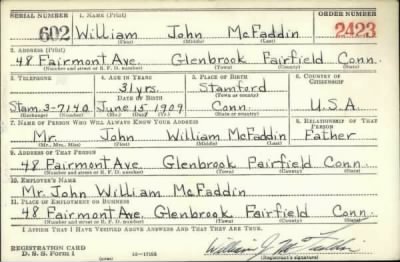 SERIAL NUMBER 1. NAME (Print) ORDER NUMBER
602 William John McFaddin 2423
(First) (Middle) (Last)
2. ADDRESS (Print)
48 Fairmont Ave. Glenbrook Fairfield Conn.
(Number and street or R. F. D. number) (Town) (County) (State)
3. TELEPHONE 4. AGE IN YEARS 5. PLACE OF BIRTH 6. COUNTRY OF CITIZENSHIP
31 yrs. Stamford
DATE OF BIRTH (Town or county)
Stam. 3-7140 June 15, 1909 Conn. U.S.A.
(Exchange) (Number) (Mo.) (Day) (Yr.) (State or country)
7. NAME OF PERSON WHO WILL ALWAYS KNOW YOUR ADDRESS 8. RELATIONSHIP OF THAT PERSON
Mr. John William McFaddin Father
(Mr., Mrs., Miss) (First) (Middle) (Last)
9. ADDRESS OF THAT PERSON
48 Fairmont Ave. Glenbrook Fairfield Conn.
(Number and street or R. F. D. number) (Town) (County) (State)
10. EMPLOYER'S NAME
Mr. John William McFaddin
11. PLACE OF EMPLOYMENT OR BUSINESS
48 Fairmont Ave. Glenbrook Fairfield Conn.
(Number and street or R. F. D. number) (Town) (County) (State)
I AFFIRM THAT I HAVE VERIFIED ABOVE ANSWERS AND THAT THEY ARE TRUE.
REGISTRATION CARD
D. S. S. Form 1 (over) William J. McFaddin
(Registrant's signature)